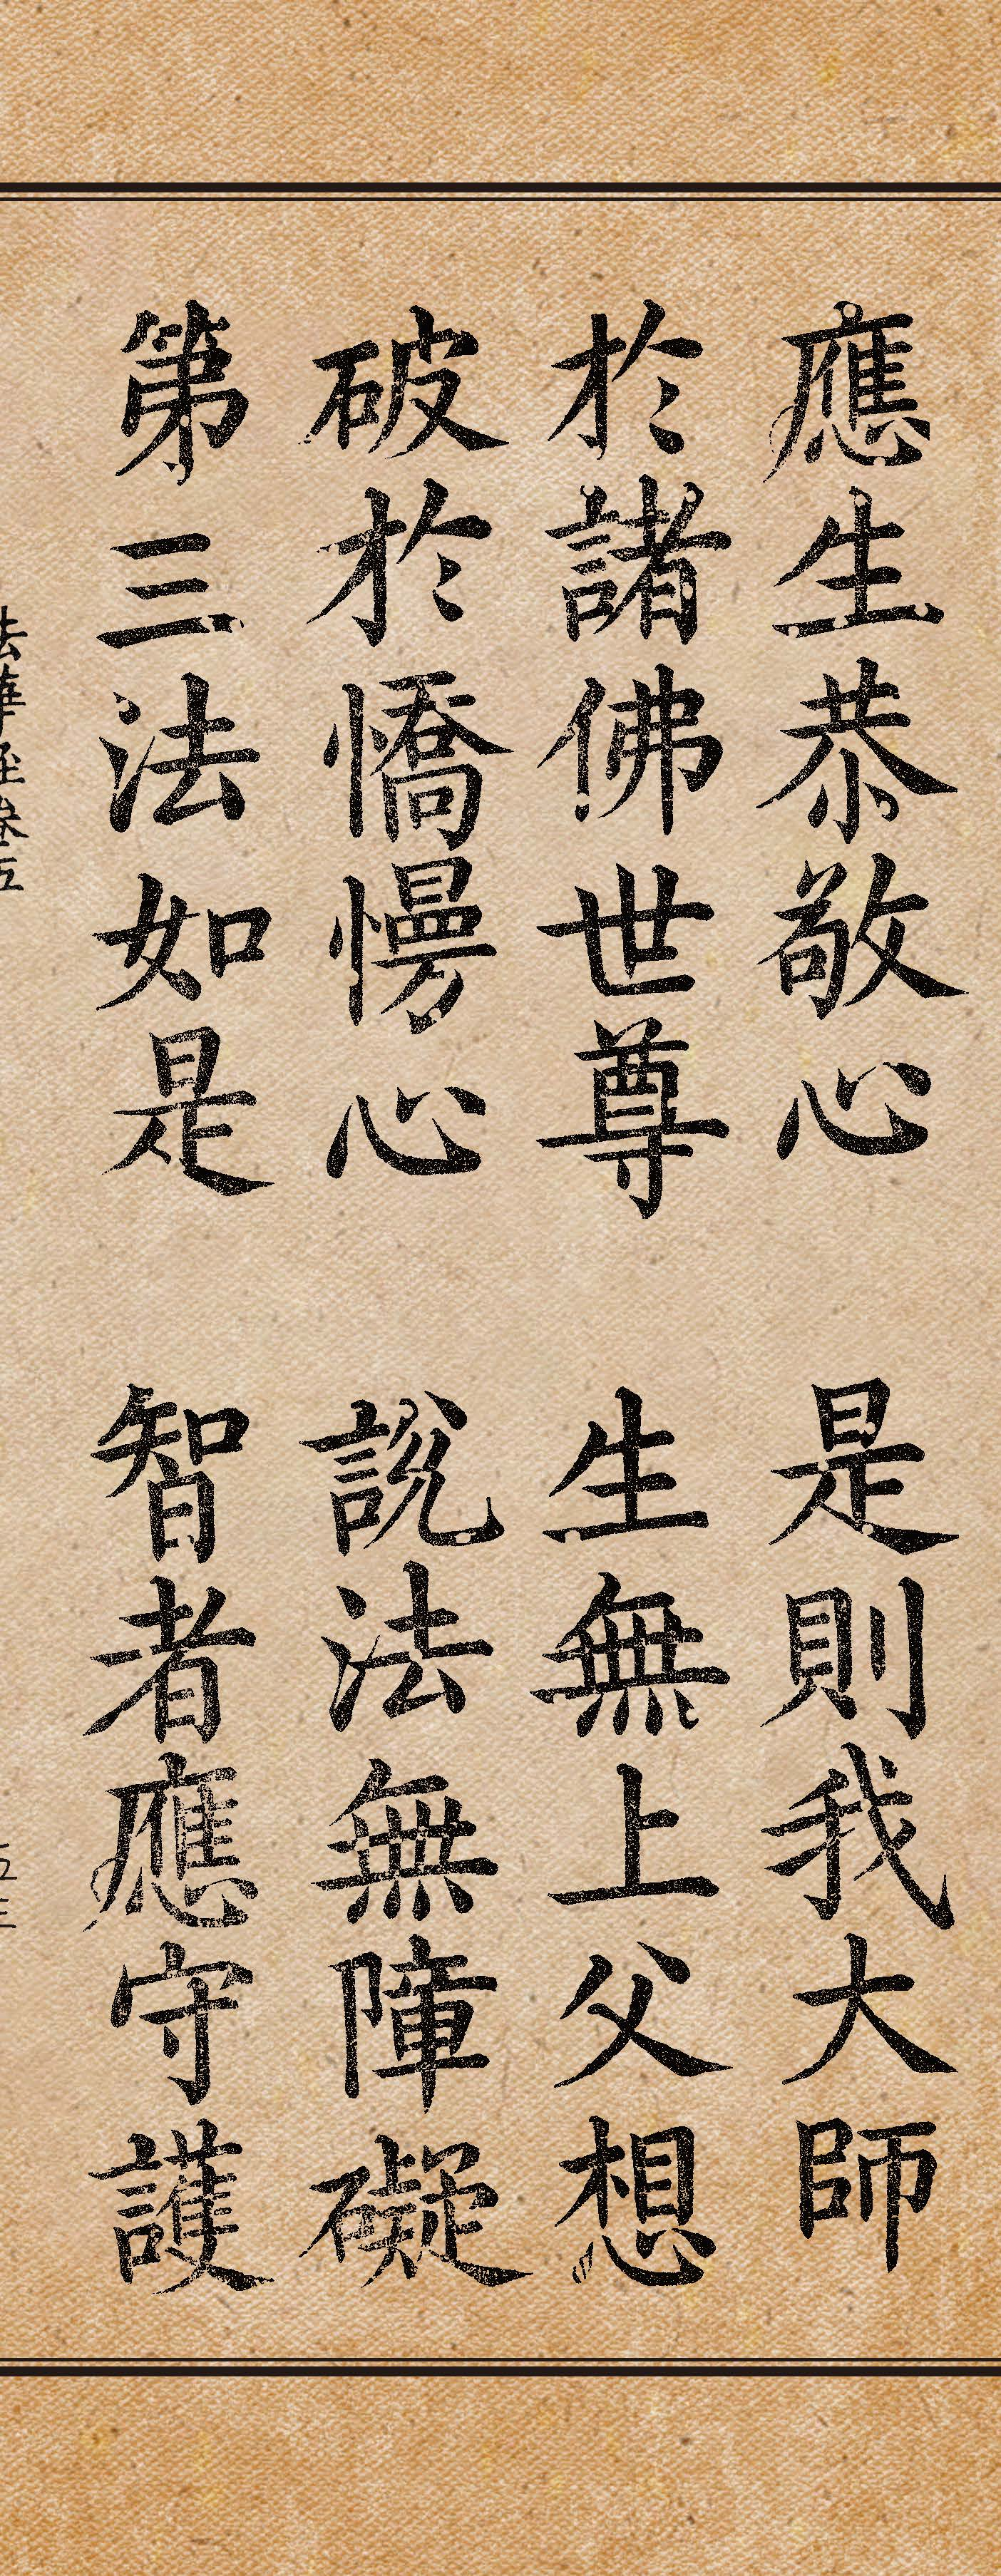 應生恭敬心 是則我大師
於諸佛世尊 生無上父想
破於憍慢心 說法無障礙
第三法如是 智者應守護
法華經卷五 五三